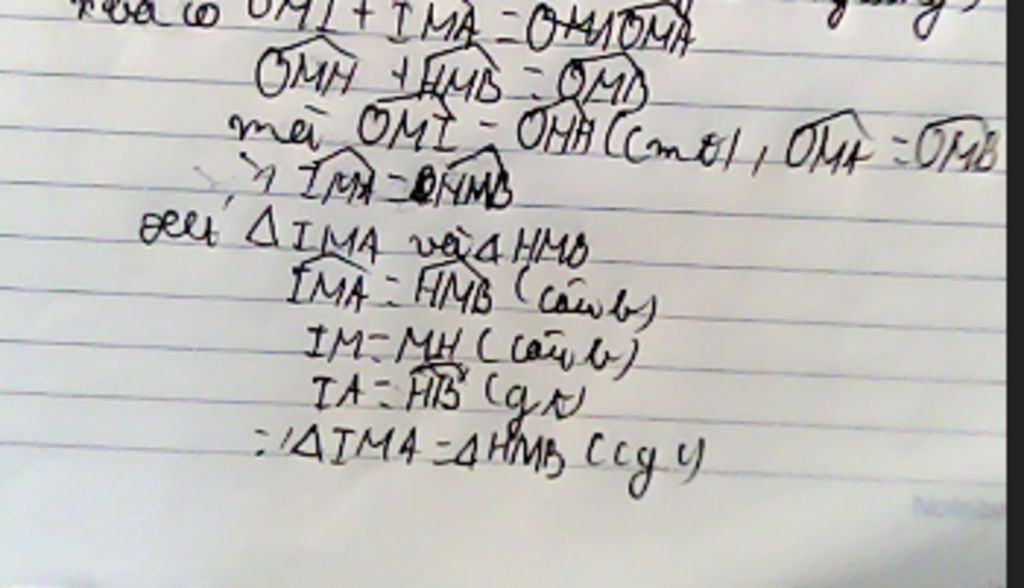 ta có OMI + IMA = OMA
OMH + HMB = OMB
mà OMI = OMH (cmt), OMA = OMB
=> IMA = HMB
xét ΔIMA và ΔHMB
IMA = HMB (câu b)
IM = MH (câu b)
IA = HB (gt)
=> ΔIMA = ΔHMB (cgc)